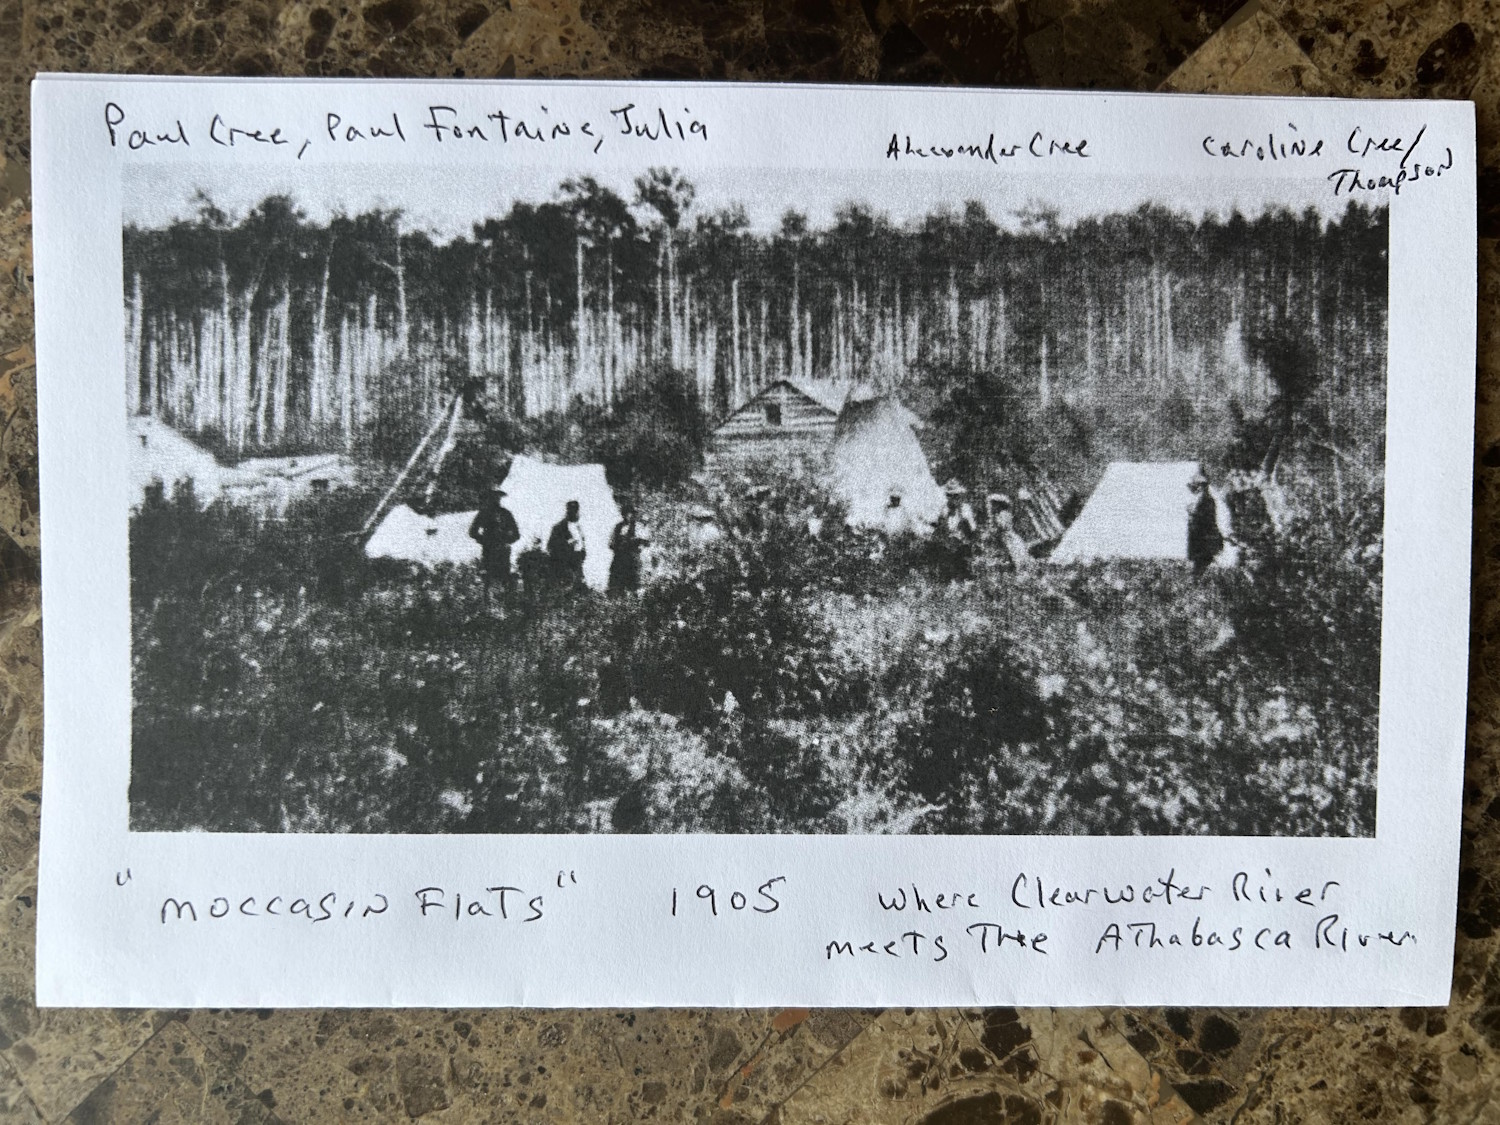 Paul Cree, Paul Fontaine, Julia
Alecxander Cree
Caroline Cree/
Thompson
"Moccasin Flats" 1905
where Clearwater River
meets The Athabasca River